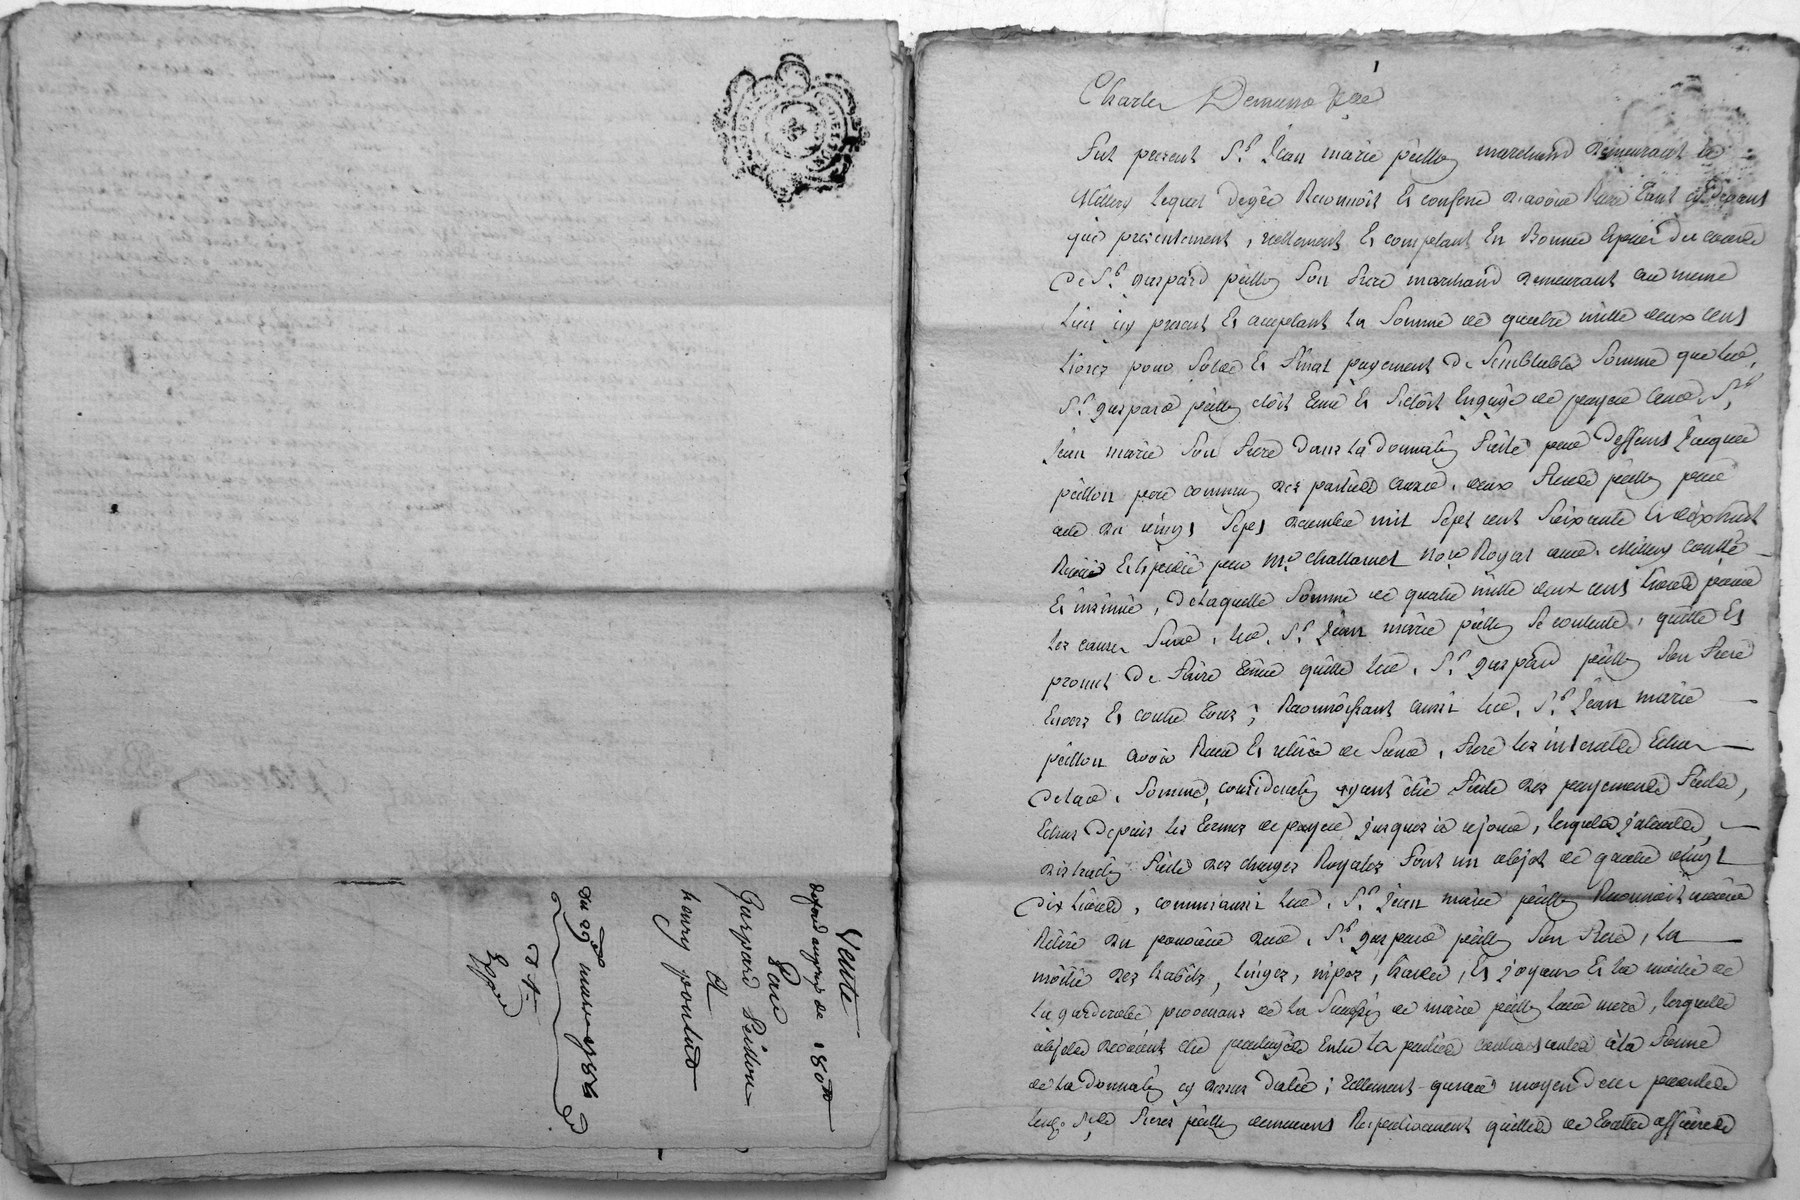 Vente
au prix de 1800
Par
Gaspard Peillon
A
henry
Du 29 mars 1786
Expé
Fut present Sr. Jean marie peillon marchand demeurant a
Millery lequel degré Reconnoit et confesse avoir Receu tant cy devant
que presentement, reellement et comptant En Bonnes Espece du cours
de Sr. gaspard peillon son frere marchand demeurant au meme
Lieu icy present et acceptant La Somme de quatre mille deux cens
Livres pour Solde et Final payement de Semblable Somme que led.
Sr. gaspard peillon etoit tenu et Setoit Engagé de payer aud. Sr.
Jean marie Son frere dans la donnation faite par deffunt Jacques
peillon pere commun des parties auxd. deux freres peillon par
acte du vingt Sept decembre mil Sept cent Soixante et dixhuit
Receu et Expedié par Me. Nore Royal aud. Millery
et insinué, de laquelle Somme de quatre mille deux cens Livres pour
les causes led. Sr. Jean marie peillon Se contente, quitte et
promet de faire tenir quitte led. Sr. gaspard peillon Son frere
Envers et contre tous; Reconnoissant aussi led. Sr. Jean marie
peillon avoir Receu et retiré de Sond. frere les interets Echus
de lad. Somme, consideration ayant été faite des payements faits,
Echus depuis les termes de payer jusques à ce jour, lesquels interets,
distraction faite des charges Royales font un objet de quatre vingt
dix Livres, comme aussi led. Sr. Jean marie peillon Reconnoit avoir
Retiré du pouvoir dud. Sr. gaspard peillon Son frere, la
moitié des habits, linges, nipes, hardes, et joyaux et la moitié de
la garderobe provenant de la Succession de marie peillon leur mere, lesquels
objets devoient etre partagés Entre les parties contractantes à la forme
de la donnation cy dessus datée; tellement qu'au moyen de ces presentes
freres peillon demeurent Respectivement quittes de toutes affaires